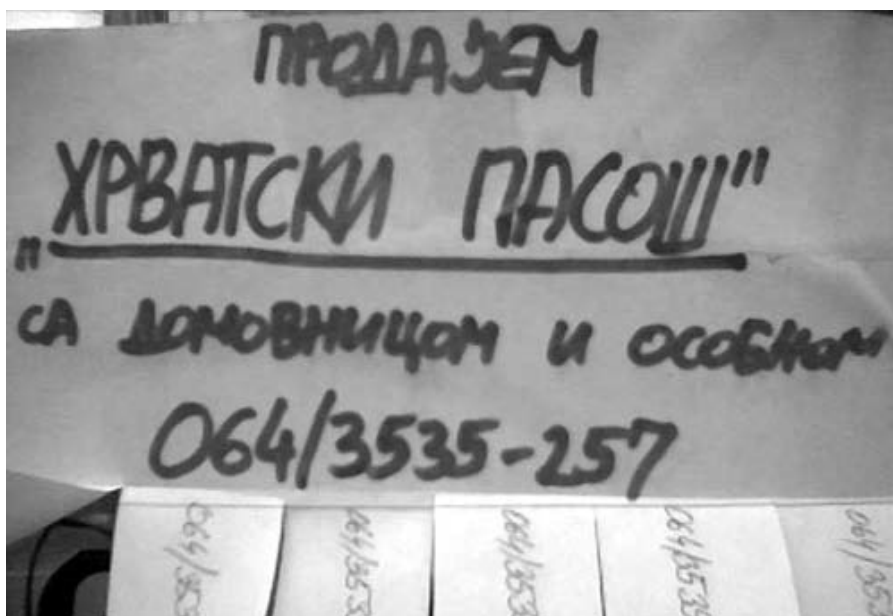 ПРОДАЈЕМ
„ХРВАТСКИ ПАСОШ"
СА ДОМОВНИЦОМ И ОСОБНОМ
064/3535-257
064/353
064/353
064/353
064/3535
064/35